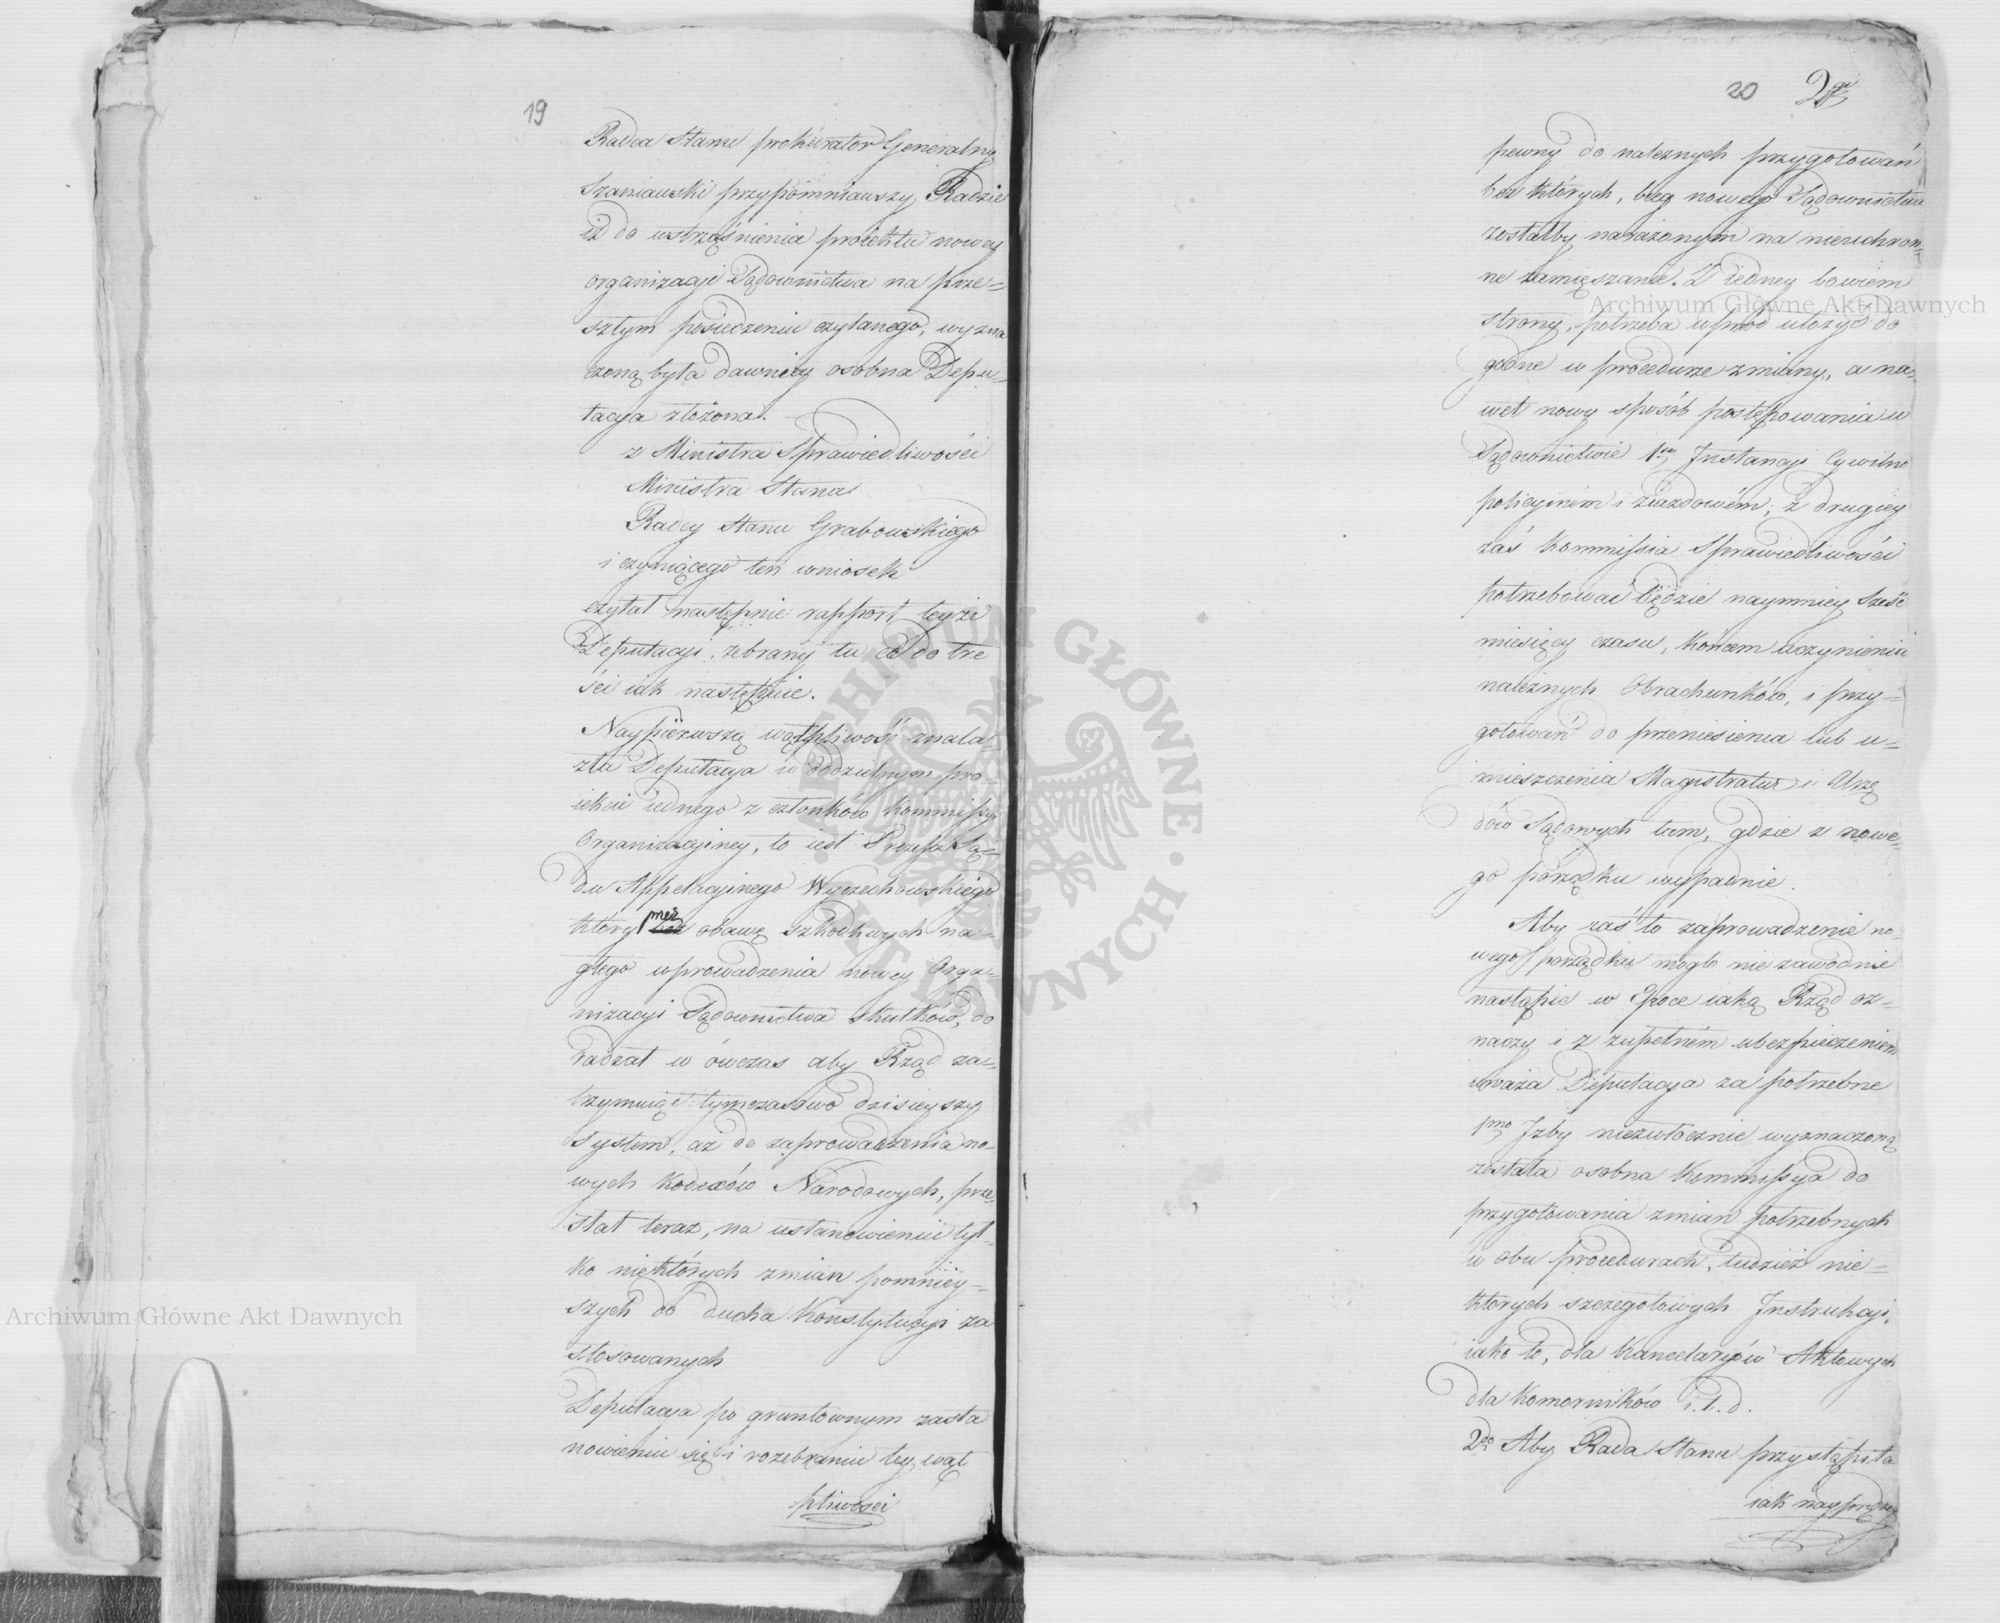 19
Radca Stanu prokurator Generalny
Szaniawski przypomniawszy Radzie
iż do ustrząśnienia proiektu nowey
organizacji Sądownictwa na prze=
szłym posiedzeniu czytanego, wyzna
czoną była dawniey osobna Depu=
tacya złożona.
z Ministra Sprawiedliwości
Ministra Stanu
Radcy Stanu Grabowskiego
i czyniącego ten wniosek
czytał następnie rapport teyże
Deputacyi, zebrany tu co do tre
ści iak następuie.
Naypierwszą wątpliwość znala=
zła Deputacya w oddzielnym pro=
iekcie iednego z członków Kommissyi
Organizacyiney, to iest Prezesa Są=
du Appelacyinego Wyczechowskiego
który przez obawę szkodliwych na=
głego wprowadzenia nowey Orga=
nizacyi Sądownictwa skutków, do
radzał w ówczas aby Rząd za=
trzymuiąc tymczasowo dzisieyszy
system, aż do zaprowadzenia no=
wych Kodexów Narodowych, prze=
stał teraz, na ustanowieniu tyl=
ko niektórych zmian pomniey=
szych do ducha Konstytucyi za
stosowanych
Deputacya po gruntownym zasta
nowieniu się i rozebraniu tey wąt
pliwości
20
pewny do należnych przygotowań
bez których, bieg nowego Sądownictwa
zostałby narażonym na nieuchron=
ne zamięszanie. Z iedney bowiem
strony, potrzeba wprzód ułożyć do
godne w procedurze zmiany, a na=
wet nowy sposób postępowania w
Sądownictwie 1ey Instancyi Cywilno
policyiném i ziazdowém; z drugiey
zaś Kommissia Sprawiedliwości
potrzebować będzie naymniey sześć
miesięcy czasu, końcem uczynienia
należnych Obrachunków, i przy=
gotowań do przeniesienia lub u=
mieszczenia Magistratur i Urzę
dów Sądowych tam, gdzie z nowe=
go porządku wypadnie.
Aby zaś to zaprowadzenie no=
wego porządku mogło niezawodnie
nastąpić w Epoce iaką Rząd oz=
naczy i z zupełném ubezpieczeniem
uważa Deputacya za potrzebne
1mo Iżby niezwłocznie wyznaczoną
została osobna Kommissya do
przygotowania zmian potrzebnych
w obu procedurach, tudzież nie=
których szczegółowych Instrukcyi,
iako to, dla Kancelaryów Aktowych
dla Komorników i.t.d.
2do Aby Rada Stanu przystąpiła
iak nayprędzey
Archiwum Główne Akt Dawnych
Archiwum Główne Akt Dawnych
ARCHIWUM GŁÓWNE AKT DAWNYCH